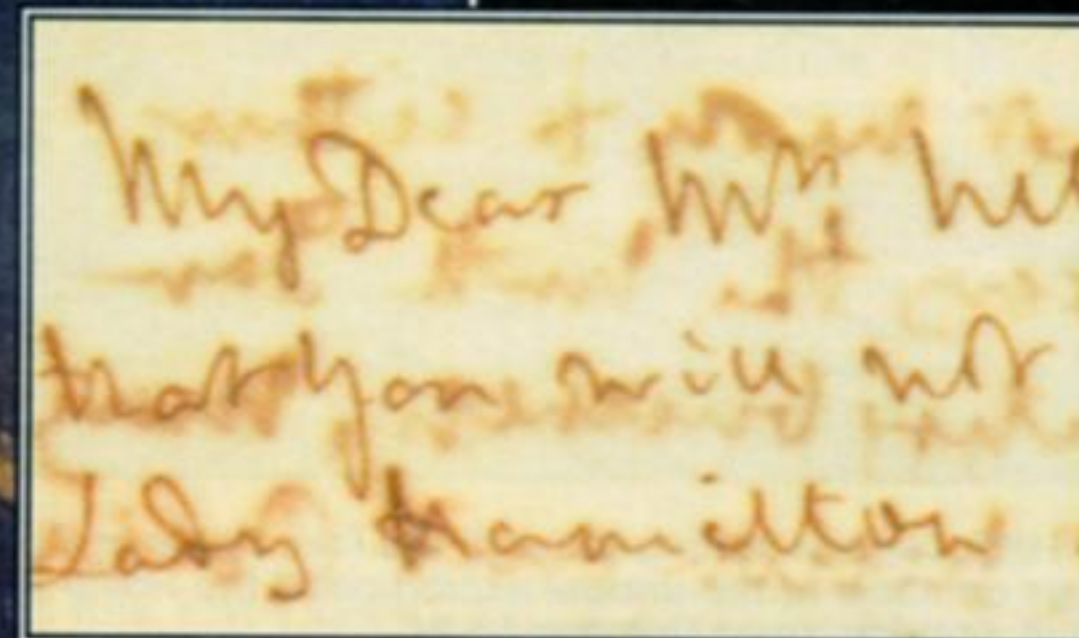 My Dear Mrs
that you will not
Lady Hamilton